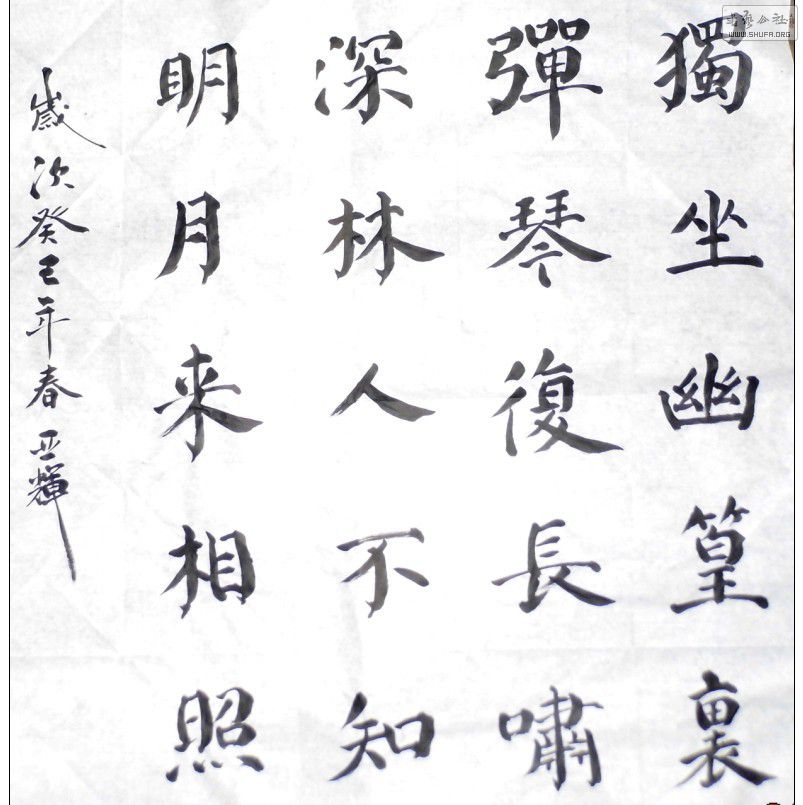 獨坐幽篁裏
彈琴復長嘯
深林人不知
明月来相照
歲次癸巳年春亚輝
书艺公社
WWW.SHUFA.ORG